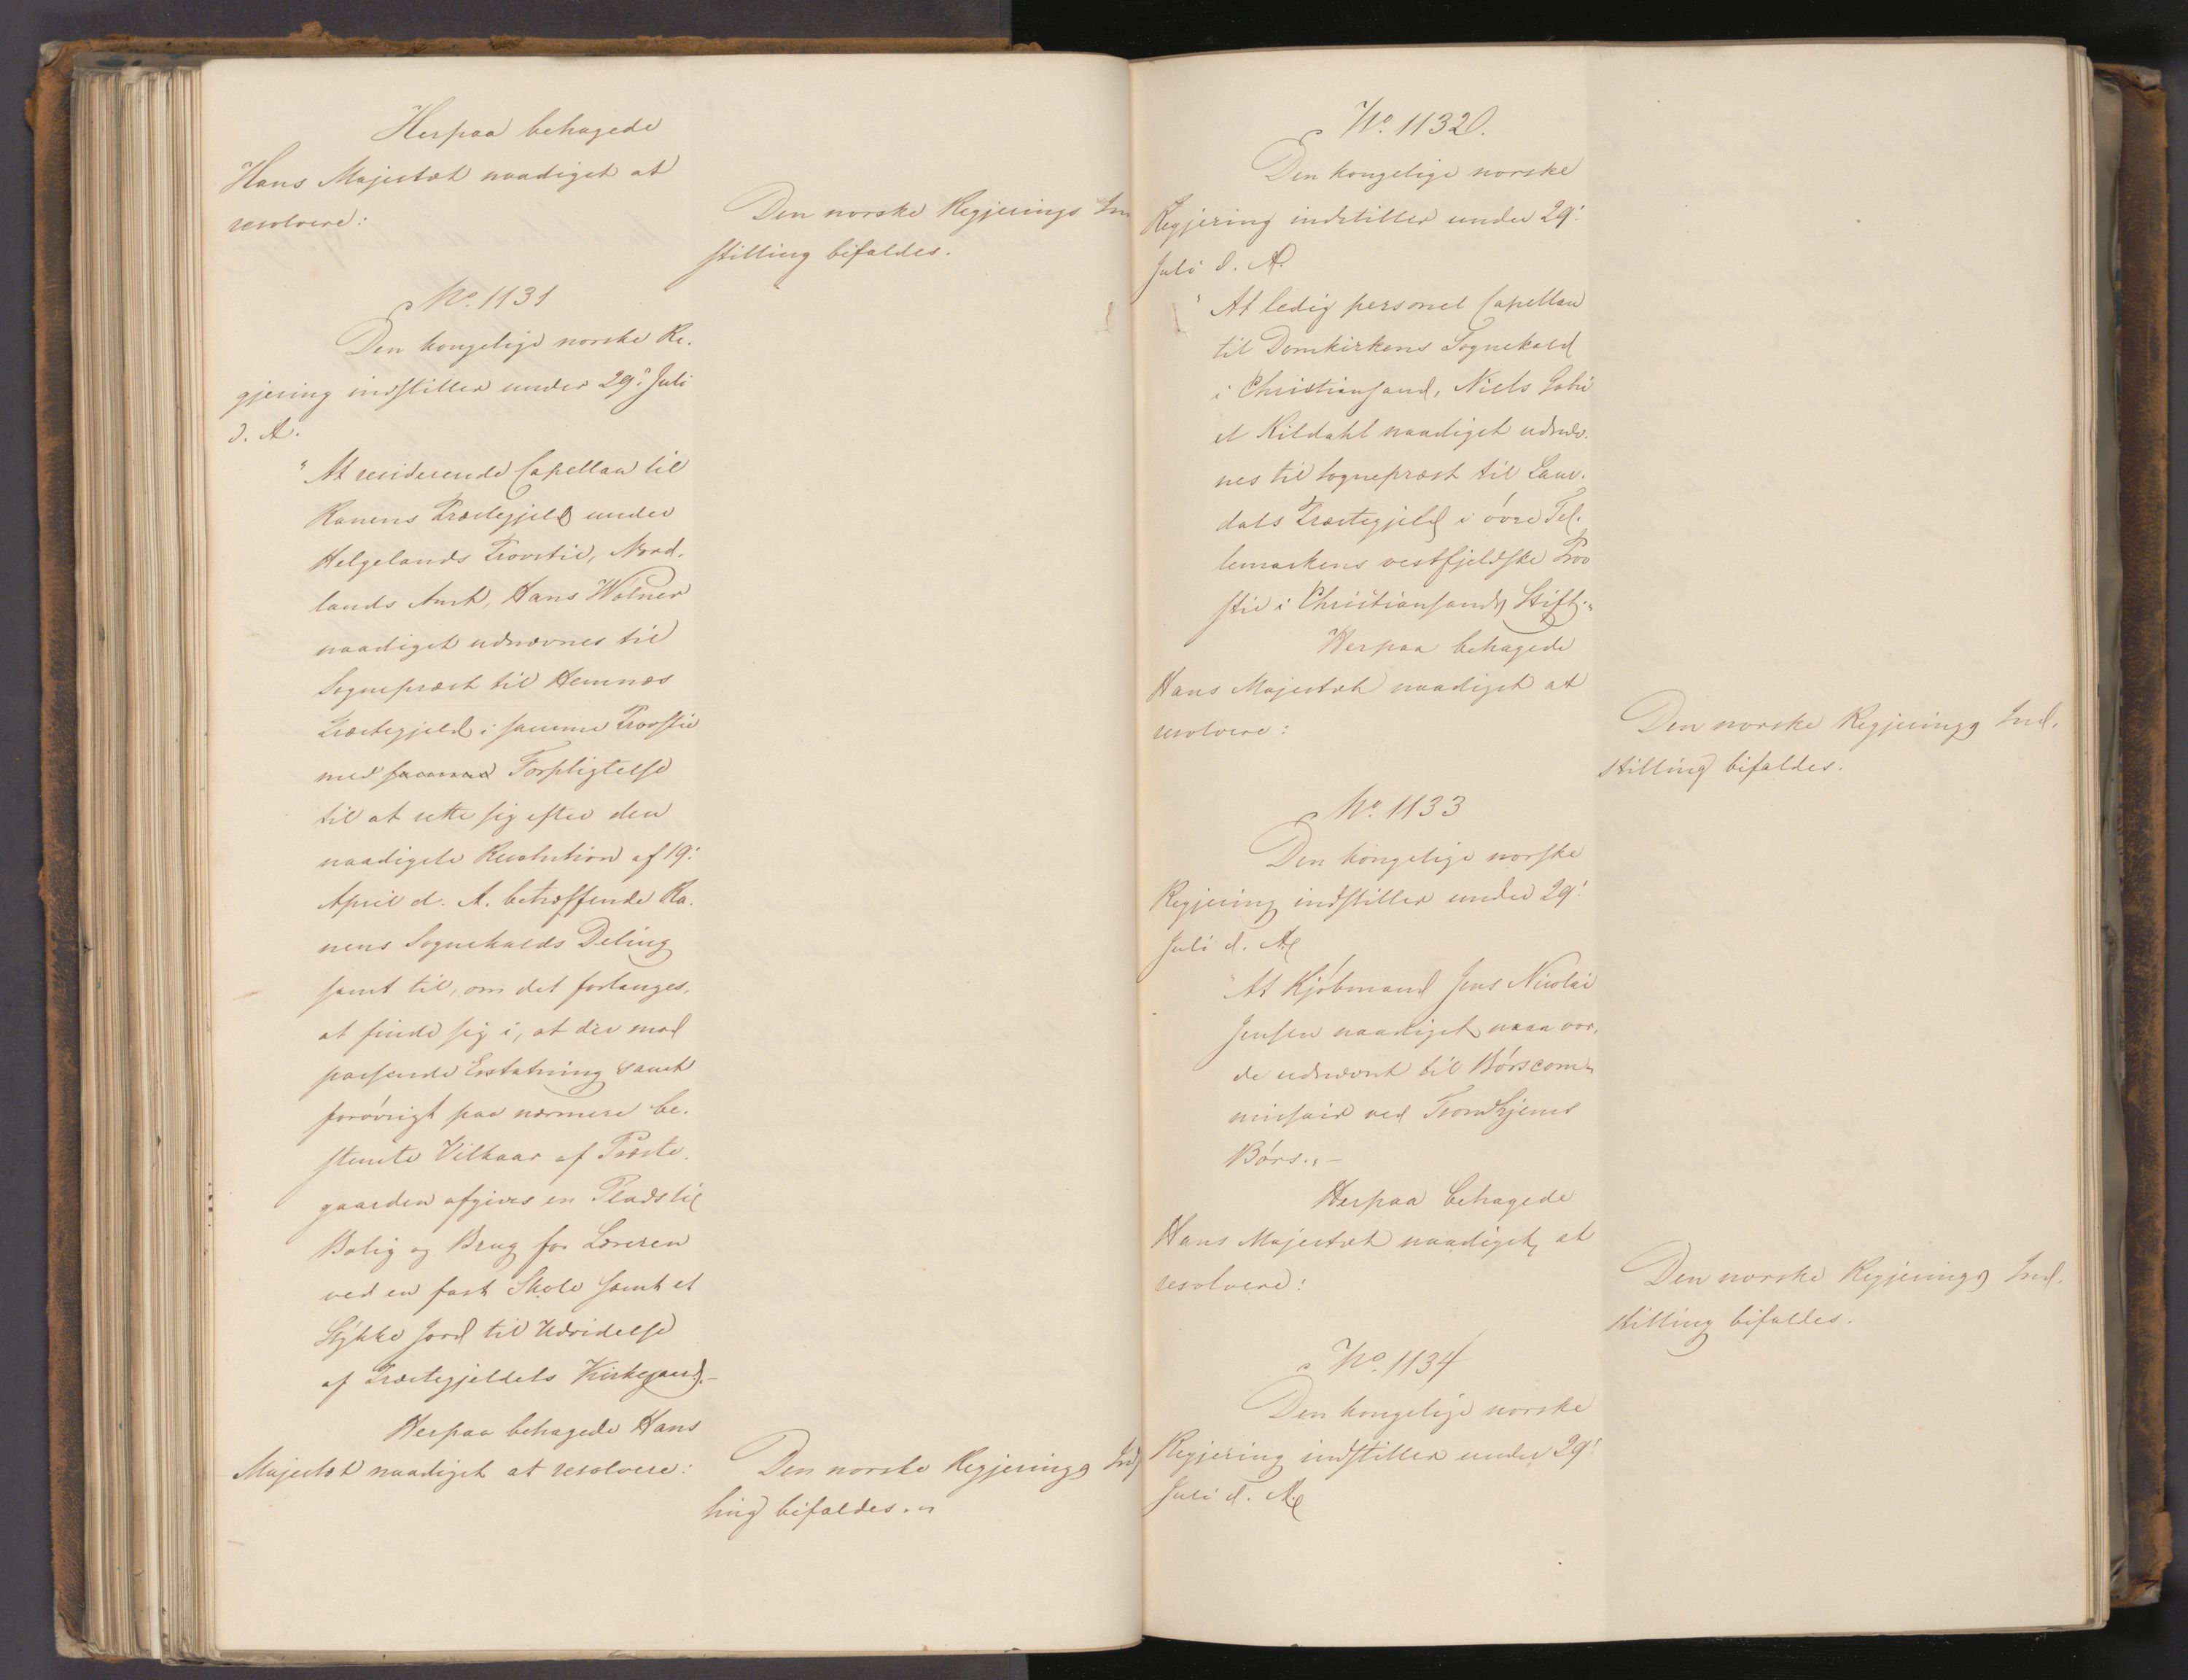 Herpaa behagede
Hans Majestæt naadigst at
resolvere:
Den norske Regjerings In
stilling bifaldes.
No. 1131
Den kongelige norske Re-
gjering indstiller under 29. Juli
d. A.
"At residerende Capellan til
Ranens Præstegjeld under
Helgelands Provsti, Nord-
lands Amt, Hans Wølner
naadigst udnævnes til
Sognepræst til Hemnæs
Præstegjeld i samme Provstie
med samme Forpligtelse
til at rette sig efter den
naadigste Resolution af 19.
April d. A. betræffende Ra-
nens Sognekalds Deling
samt til, om det forlanges,
at finde sig i, at der mod
passende Erstatning samt
forøvrigt paa nærmere be-
stemte Vilkaar af Præste-
gaarden afgives en Plads til
Bolig og Brug for Læreren
ved en fast Skole samt et
Stykke Jord til Udvidelse
af Præstegjeldets Kirkegaard.-
Herpaa behagede Hans
Majestæt naadigst at resolvere:
Den norske Regjerings Ind
ling bifaldes."
No. 1132.
Den kongelige norske
Regjering indstiller under 29.
Juli d. A.
"At ledig personel Capellan
til Domkirkens Sognekald
i Christiansand, Niels Gabri
el Kildahl naadigst udnæv-
nes til Sognepræst til Laur-
dals Præstegjeld i øvre Tel-
lemarkens vestfjeldske Prov
stie i Christiansands Stift."
Herpaa behagede
Hans Majestæt naadigst at
resolvere:
Den norske Regjerings Ind-
stilling bifaldes.
No. 1133
Den kongelige norske
Regjering indstiller under 29.
Juli d. A.
"At Kjøbmand Jens Nicolai
Jensen naadigst maa vor-
de udnævnt til Børscom-
missair ved Trondhjems
Børs."-
Herpaa behagede
Hans Majestæt naadigst at
resolvere:
Den norske Regjerings Ind-
stilling bifaldes.
No. 1134
Den kongelige norske
Regjering indstiller under 29.
Juli d. A.